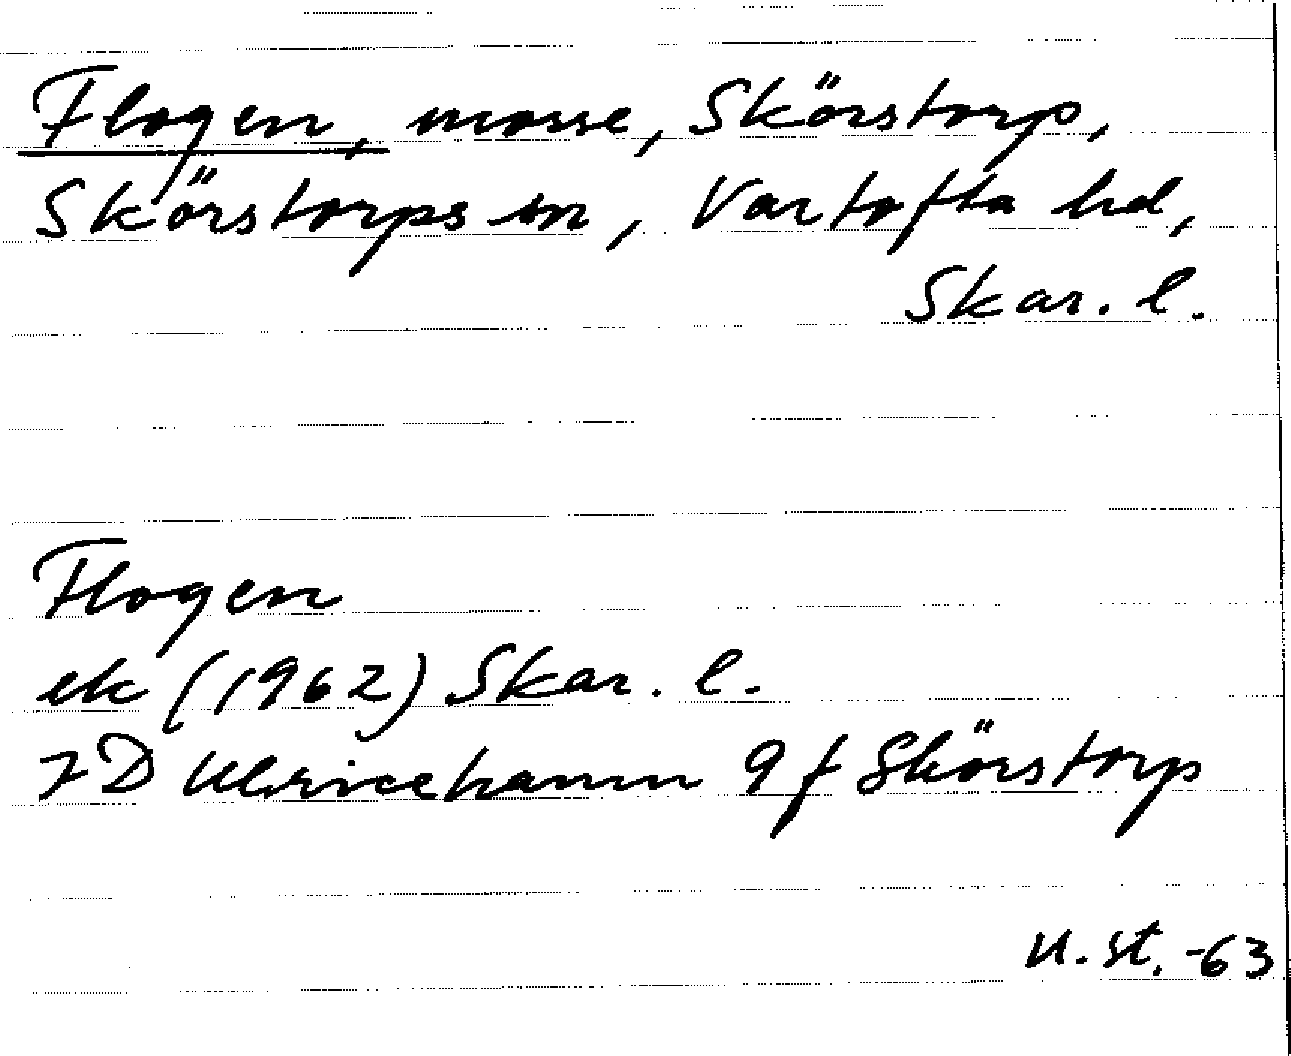 Flogen, mosse, Skörstorp,
Skörstorps sn, Vartofta hd,
Skar. l.
Flogen
ek (1962) Skar. l.
7D Ulricehamn 9f Skörstorp
U. St. -63